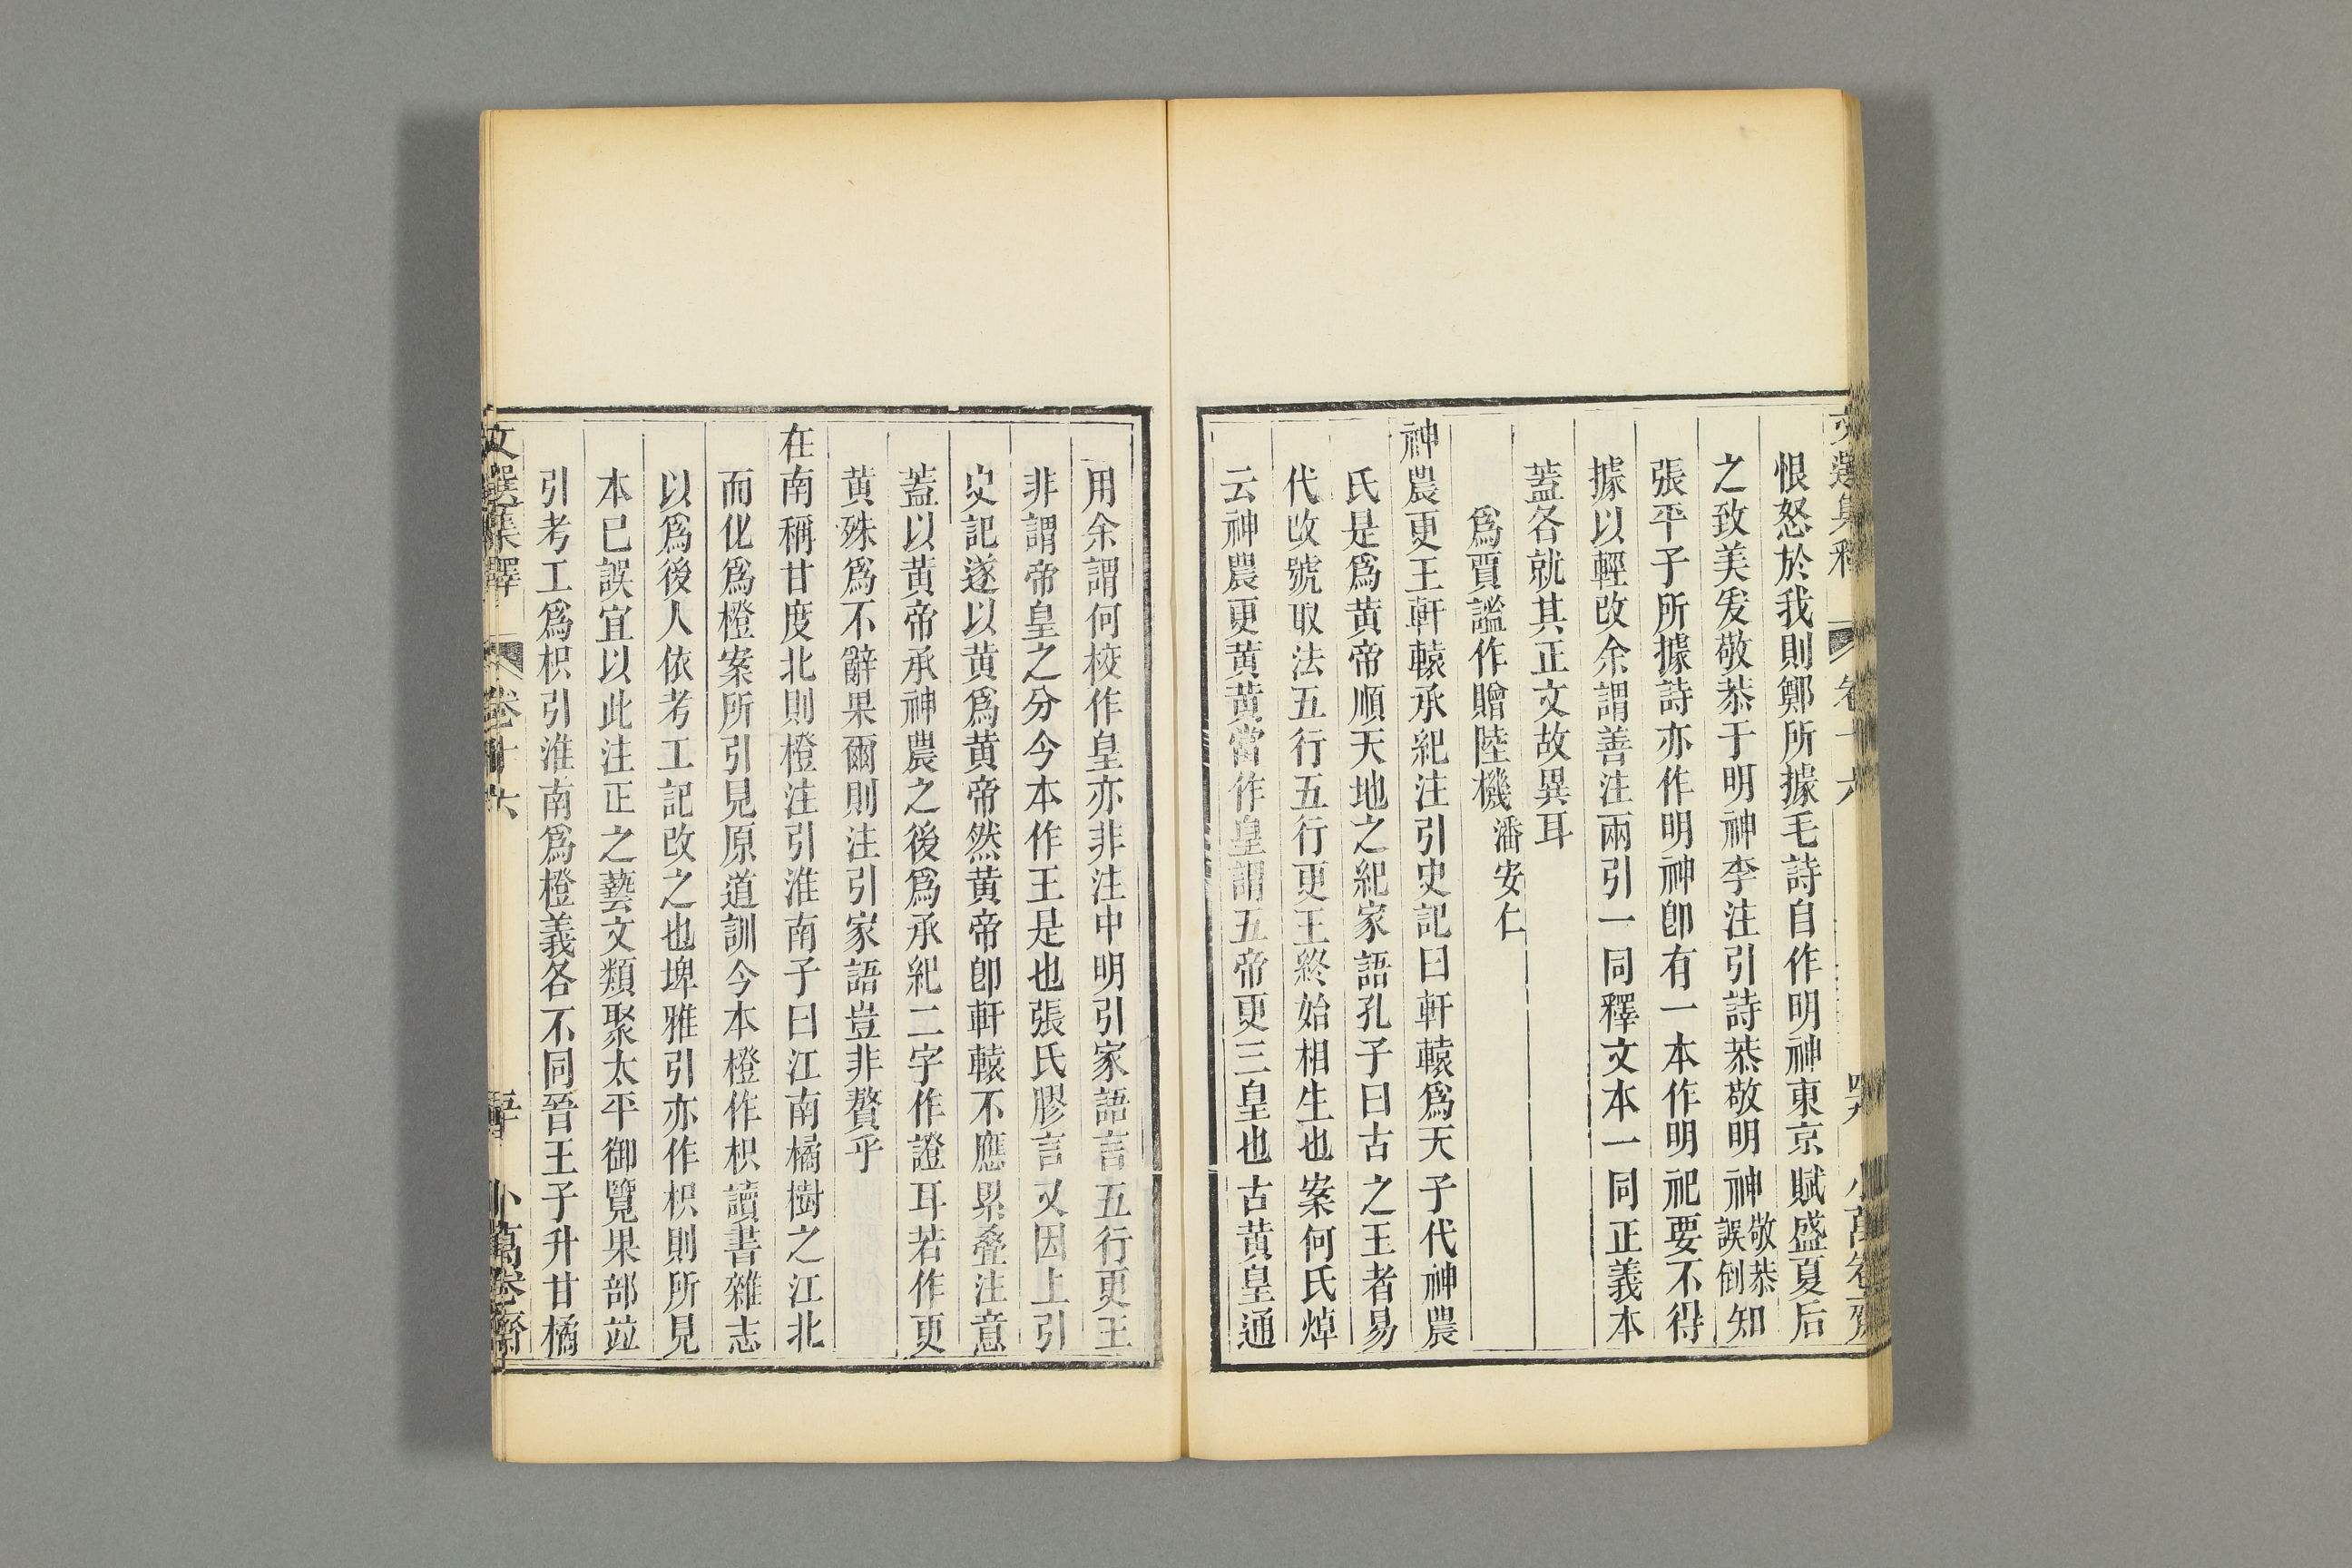 恨怒於我則鄭所據毛詩自作明神東京賦盛夏后
之致美爰敬恭于明神李注引詩恭敬明神敬恭誤倒知
張平子所據詩亦作明神卽有一本作明祀要不得
據以輕改余謂善注兩引一同釋文本一同正義本
蓋各就其正文故異耳
爲賈謐作贈陸機潘安仁
神農更王軒轅承紀注引史記曰軒轅爲天子代神農
氏是爲黃帝順天地之紀家語孔子曰古之王者易
代改號取法五行五行更王終始相生也案何氏焯
云神農更黃黃當作皇謂五帝更三皇也古黃皇通
用余謂何校作皇亦非注中明引家語言五行更王
非謂帝皇之分今本作王是也張氏膠言又因上引
史記遂以黃爲黃帝然黃帝卽軒轅不應累疊注意
蓋以黃帝承神農之後爲承紀二字作證耳若作更
黃殊爲不辭果爾則注引家語豈非贅乎
在南稱甘度北則橙注引淮南子曰江南橘樹之江北
而化爲橙案所引見原道訓今本橙作枳讀書雜志
以爲後人依考工記改之也埤雅引亦作枳則所見
本已誤宜以此注正之藝文類聚太平御覽果部竝
引考工爲枳引淮南爲橙義各不同晉王子升甘橘
文選集釋 卷十六 五十 小萬卷齋